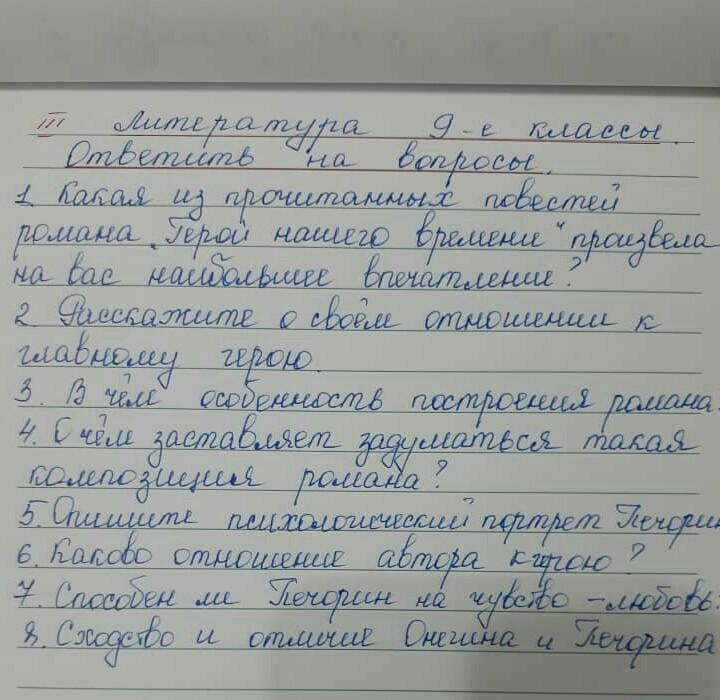 III Литература 9-е классы.
Ответить на вопросы.
1. Какая из прочитанных повестей
романа „Герой нашего времени" произвела
на вас наибольшее впечатление?
2. Расскажите о своём отношении к
главному герою.
3. В чём особенность построения романа.
4. О чём заставляет задуматься такая
композиция романа?
5. Опишите психологический портрет Печорин
6. Каково отношение автора к герою?
7. Способен ли Печорин на чувство – любовь.
8. Сходство и отличие Онегина и Печорина